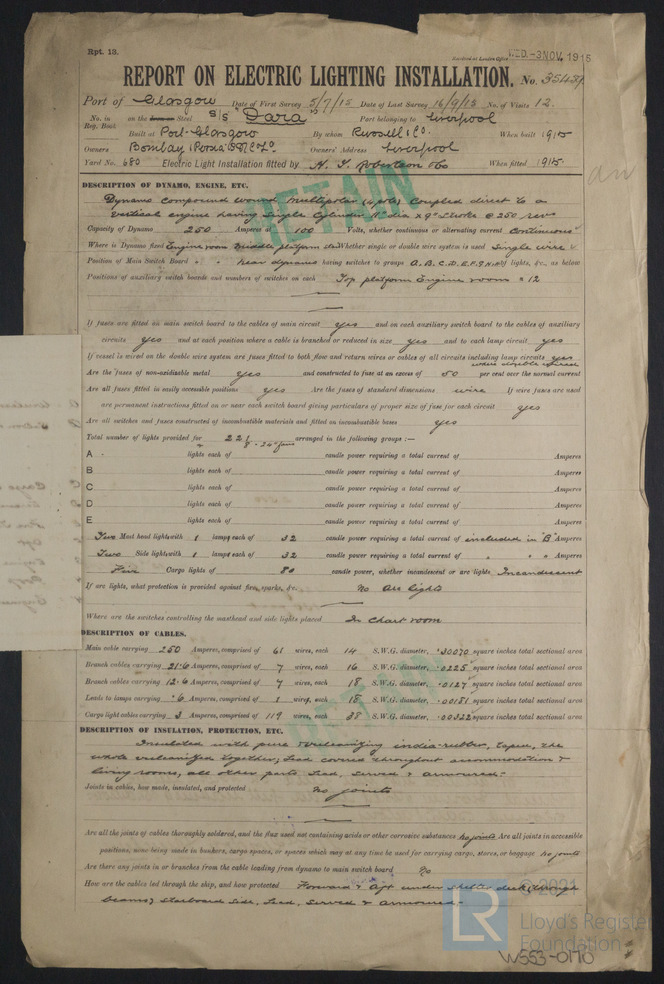 Rpt. 13.
Received at London Office WED.-3 NOV. 1915
REPORT ON ELECTRIC LIGHTING INSTALLATION. No. 35437
Port of Glasgow Date of First Survey 5/7/15 Date of Last Survey 16/9/15 No. of Visits 12.
No. in Reg. Book on the Steel S/S "Dara" Port belonging to Liverpool
Built at Port-Glasgow By whom Russell & Co. When built 1915
Owners Bombay & Persia Owners' Address Liverpool
Yard No. 680 Electric Light Installation fitted by H. J. Robertson & Co When fitted 1915
DESCRIPTION OF DYNAMO, ENGINE, ETC.
Dynamo compound wound multipolar (4 pole) Coupled direct to a
vertical engine having Single Cylinder dia x 9" Stroke @ 250 revs
Capacity of Dynamo 250 Amperes at 100 Volts, whether continuous or alternating current Continuous
Where is Dynamo fixed Engine room middle platform Whether single or double wire system is used Single wire
Position of Main Switch Board near dynamo having switches to groups A. B. C. D. E. F. G. H. of lights, &c., as below
Positions of auxiliary switch boards and numbers of switches on each Top platform Engine room = 12
If fuses are fitted on main switch board to the cables of main circuit yes and on each auxiliary switch board to the cables of auxiliary
circuits yes and at each position where a cable is branched or reduced in size yes and to each lamp circuit yes
If vessel is wired on the double wire system are fuses fitted to both flow and return wires or cables of all circuits including lamp circuits yes
where double wired
Are the fuses of non-oxidizable metal yes and constructed to fuse at an excess of 50 per cent over the normal current
Are all fuses fitted in easily accessible positions yes Are the fuses of standard dimensions wire If wire fuses are used
are permanent instructions fitted on or near each switch board giving particulars of proper size of fuse for each circuit yes
Are all switches and fuses constructed of incombustible materials and fitted on incombustible bases yes
Total number of lights provided for 221 arranged in the following groups :—
+ 8 - 24" fans
A lights each of candle power requiring a total current of Amperes
B lights each of candle power requiring a total current of Amperes
C lights each of candle power requiring a total current of Amperes
D lights each of candle power requiring a total current of Amperes
E lights each of candle power requiring a total current of Amperes
Two Mast head lights with 1 lamps each of 32 candle power requiring a total current of included in "B" Amperes
Two Side lights with 1 lamps each of 32 candle power requiring a total current of " " " Amperes
Five Cargo lights of 80 candle power, whether incandescent or arc lights Incandescent
If arc lights, what protection is provided against fire, sparks, &c. No Arc lights
Where are the switches controlling the masthead and side lights placed In Chart room
DESCRIPTION OF CABLES.
Main cable carrying 250 Amperes, comprised of 61 wires, each 14 S.W.G. diameter, .30070 square inches total sectional area
Branch cables carrying 21.6 Amperes, comprised of 7 wires, each 16 S.W.G. diameter, .0225 square inches total sectional area
Branch cables carrying 12.6 Amperes, comprised of 7 wires, each 18 S.W.G. diameter, .0127 square inches total sectional area
Leads to lamps carrying .6 Amperes, comprised of 1 wires, each 18 S.W.G. diameter, .00181 square inches total sectional area
Cargo light cables carrying 3 Amperes, comprised of 119 wires, each 38 S.W.G. diameter, .00322 square inches total sectional area
DESCRIPTION OF INSULATION, PROTECTION, ETC.
Insulated with pure & vulcanizing india-rubber, taped, the
whole vulcanized together; Lead covered throughout accommodation &
living rooms, all other parts Lead, Served & armoured.-
Joints in cables, how made, insulated, and protected No joints
Are all the joints of cables thoroughly soldered, and the flux used not containing acids or other corrosive substances No joints Are all joints in accessible
positions, none being made in bunkers, cargo spaces, or spaces which may at any time be used for carrying cargo, stores, or baggage No joints
Are there any joints in or branches from the cable leading from dynamo to main switch board No
How are the cables led through the ship, and how protected Forward & Aft under shelter deck, through
beams, Starboard Side, Lead, Served & Armoured.-
RETAIN
RETAIN
© 2021
LR
Lloyd's Register
Foundation
W553-0170